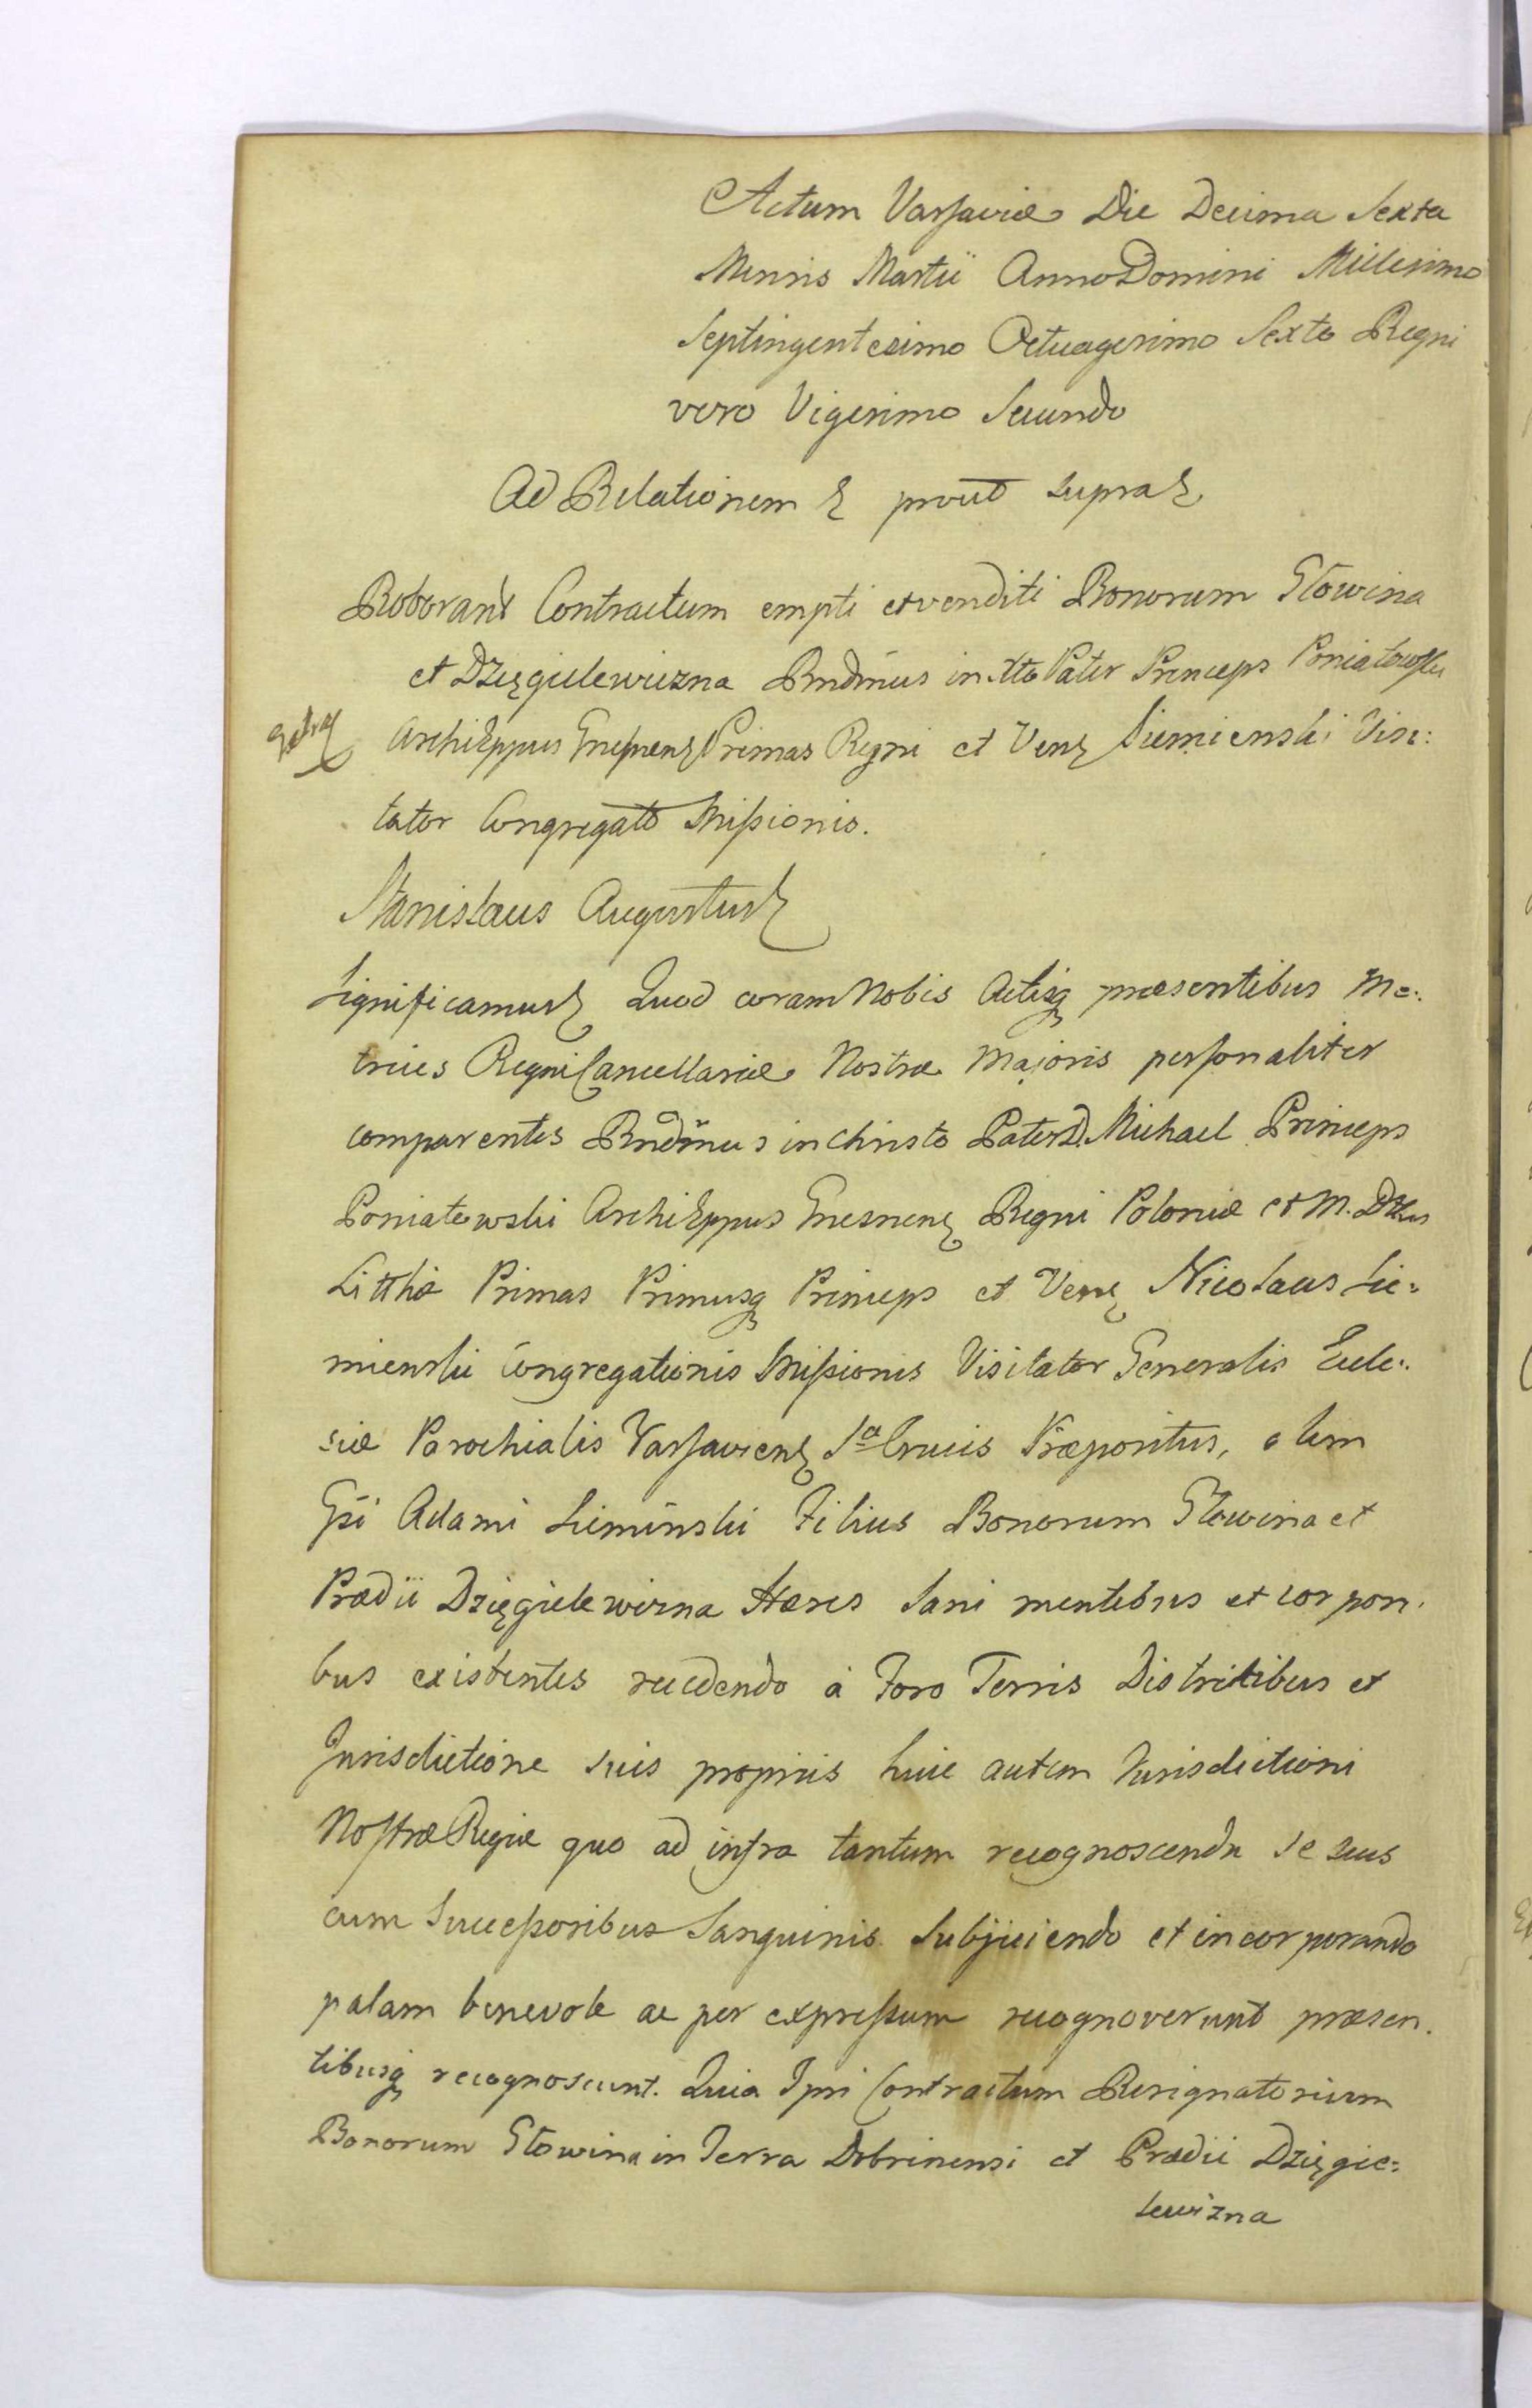 Actum Varsaviæ Die Decima Sexta
Mensis Martii Anno Domini Millesimo
Septingentesimo Octuagesimo Sexto Regni
vero Vigesimo Secundo
Ad Relationem & prout supra &
Roborant Contractum empti et venditi Bonorum Głowina
et Dzięgielewizna Rndmus in Xto Pater Princeps Poniatowski
ArchiEppus Gnesnen& Primas Regni et Ven& Siemienski Visi:
tator Congregatt Missionis.
Stanislaus Augustus&
Significamus& Quod coram Nobis Actisq præsentibus Me:
trices Regni Cancellariæ Nostræ Majoris personaliter
comparentes Rndmus in Christo Pater D. Michael Princeps
Poniatowski ArchiEppus Gnesnen& Regni Poloniæ et M. Dtus
Litthæ Primas Primusq Princeps et Ven& Nicolaus Sie:
mienski Congregationis Missionis Visitator Generalis Eccle:
siæ Parochialis Varsavien& Sæ Crucis Præpositus, olim
Gsi Adami Siemiński Filius Bonorum Głowina et
Prædii Dzięgielewizna Hæres Sani mentibus et corpori.
bus existentes recedendo à Foro Terris Districtibus et
Jurisdictione suis propriis huic autem Jurisdictioni
Nostræ Regiæ quo ad infra tantum recognoscenda se suis
cum Successoribus Sanguinis Subjiciendo et incorporando
palam benevole ac per expressum recognoverunt præsen.
tibusq recognoscunt. Quia Ipsi Contractum Resignatorium
Bonorum Głowina in Terra Dobrinensi et Prædii Dzięgie:
lewizna